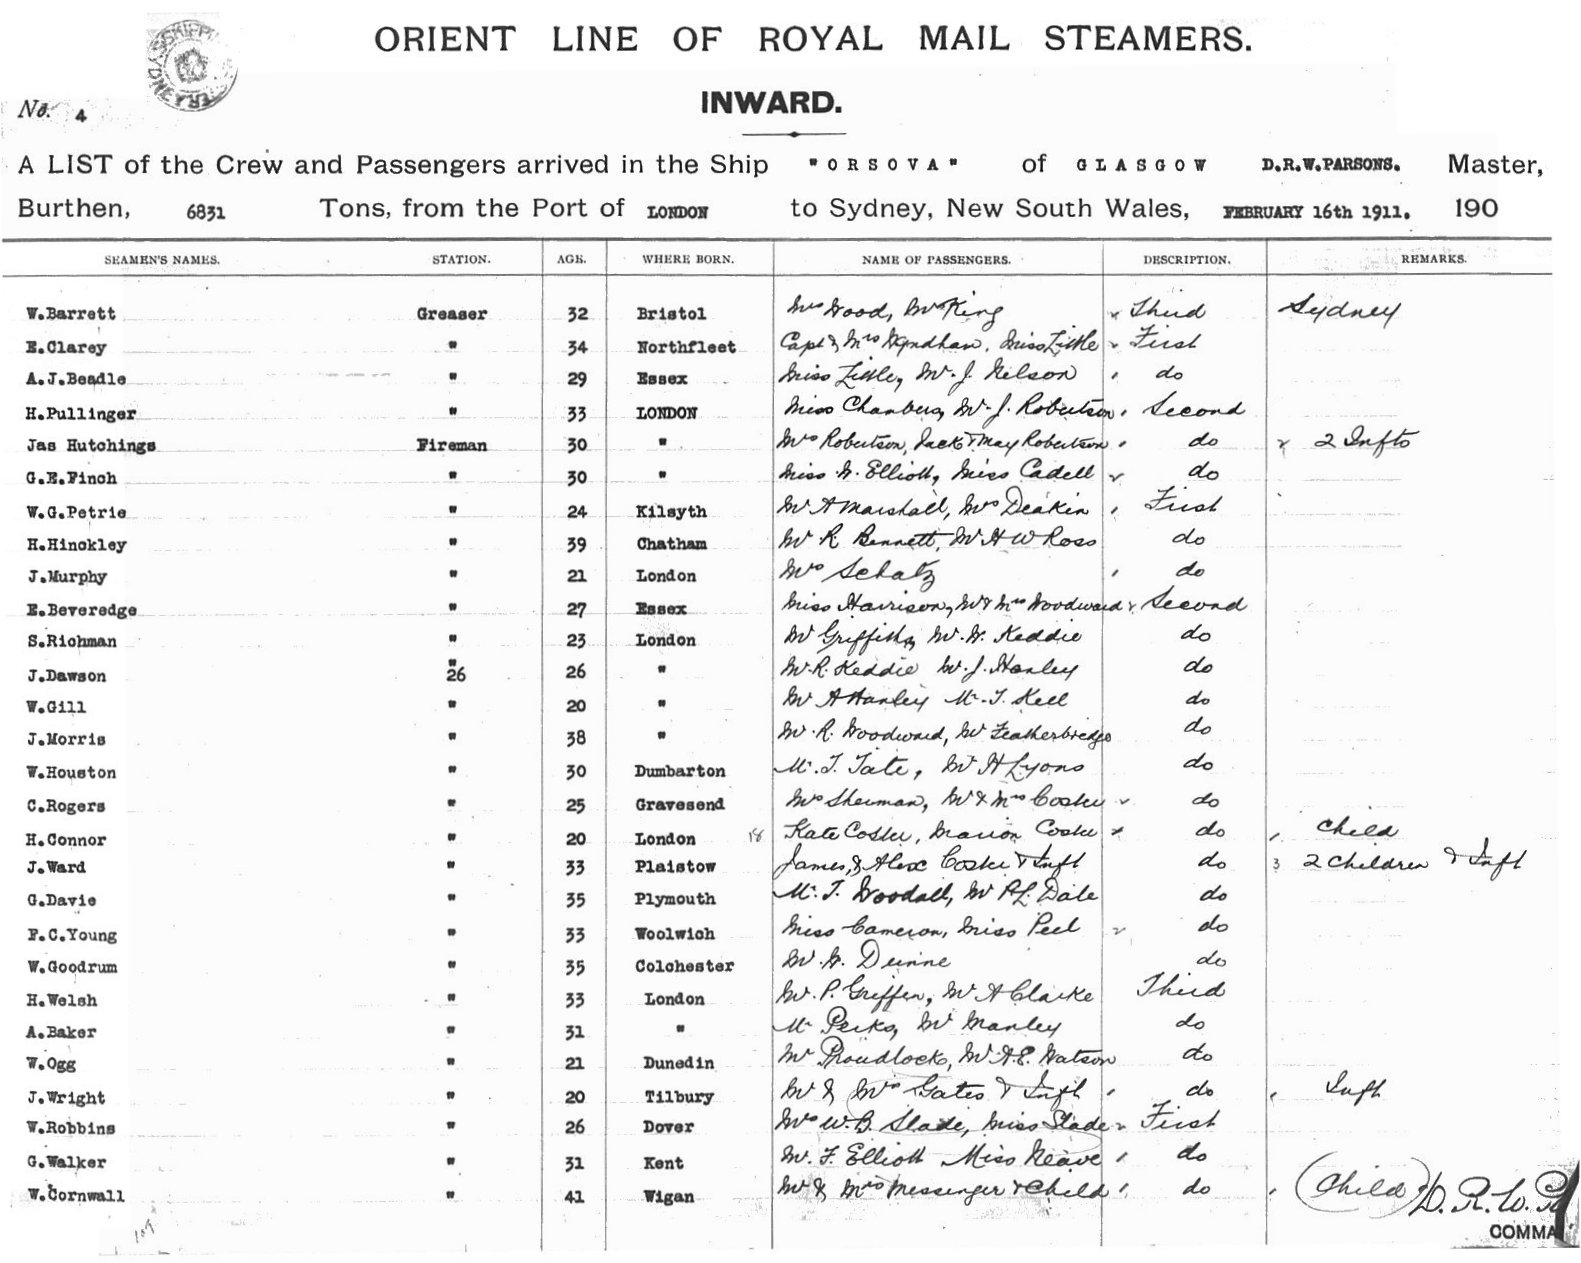 ORIENT LINE OF ROYAL MAIL STEAMERS.
No. 4
INWARD.
A LIST of the Crew and Passengers arrived in the Ship "ORSOVA" of GLASGOW D.R.W.PARSONS. Master,
Burthen, 6831 Tons, from the Port of LONDON to Sydney, New South Wales, FEBRUARY 16th 1911. 190
SEAMEN'S NAMES. STATION. AGE. WHERE BORN. NAME OF PASSENGERS. DESCRIPTION. REMARKS.
W.Barrett Greaser 32 Bristol Mrs Wood, Mr King Third Sydney
E.Clarey " 34 Northfleet Capt & Mrs Wyndham, Miss Little First
A.J.Beadle " 29 Essex Miss Little, Mr. J. Nelson do
H.Pullinger " 33 LONDON Miss Chambers, Mr. J. Robertson Second
Jas Hutchings Fireman 30 " Mrs Robertson, Jack & May Robertson do 2 Infts
G.E.Finch " 30 " Miss W. Elliott, Miss Cadell do
W.G.Petrie " 24 Kilsyth Mr A Marshall, Mrs Deakin First
H.Hinckley " 39 Chatham Mr R Bennett, Mr H W Ross do
J.Murphy " 21 London Mrs Schatz do
E.Beveredge " 27 Essex Miss Harrison, Mr & Mrs Woodward Second
S.Richman " 23 London Mr Griffiths, Mr. W. Keddie do
J.Dawson " 26 26 " Mr. R. Keddie Mr. J. Hanley do
W.Gill " 20 " Mr A Hanley Mr. T. Kell do
J.Morris " 38 " Mr. R. Woodward, Mr Featherbridge do
W.Houston " 30 Dumbarton Mr. T. Tate, Mr H Lyons do
C.Rogers " 25 Gravesend Mrs Sherman, Mr & Mrs Coster do
H.Connor " 20 London 18 Kate Coster, Marion Coster do Child
J.Ward " 33 Plaistow James, & Alex Coster & Inft do 3 2 Children & Inft
G.Davie " 35 Plymouth Mr. T. Woodall, Mr P.L. Dale do
F.C.Young " 33 Woolwich Miss Cameron, Miss Peel do
W.Goodrum " 35 Colchester Mr. W. Dunne do
H.Welsh " 33 London Mr. P. Griffen, Mr A Clarke Third
A.Baker " 31 " Mr Perks, Mr Manley do
W.Ogg " 21 Dunedin Mr Proudlock, Mr. A.E. Watson do
J.Wright " 20 Tilbury Mr & Mrs Gates & Inft do Inft
W.Robbins " 26 Dover Mrs W.B. Slade, Miss Slade First
G.Walker " 31 Kent Mr. F. Elliott Miss Neave do
W.Cornwall " 41 Wigan Mr & Mrs Messenger & Child do (Child) D. R. W. Pa
COMMA